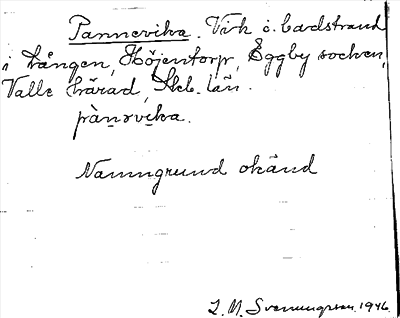 Pannevika. Vik o. badstrand
i Lången, Höjentorp, Eggby socken,
Valle härad, Skb. län.
pànəvi̱ka.
Namngrund okänd
L. M. Svenungsson 1946.